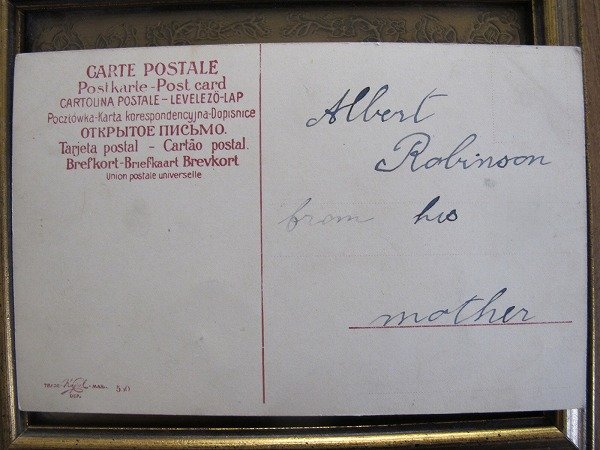 CARTE POSTALE
Postkarte - Post card
CARTOLINA POSTALE - LEVELEZŐ-LAP
Pocztówka-Karta korespondencyjna-Dopisnice
ОТКРЫТОЕ ПИСЬМО.
Tarjeta postal - Cartão postal.
Brefkort-Briefkaart Brevkort
Union postale universelle
Albert
Robinson
from his
mother
TRADE MARK.
DEP.